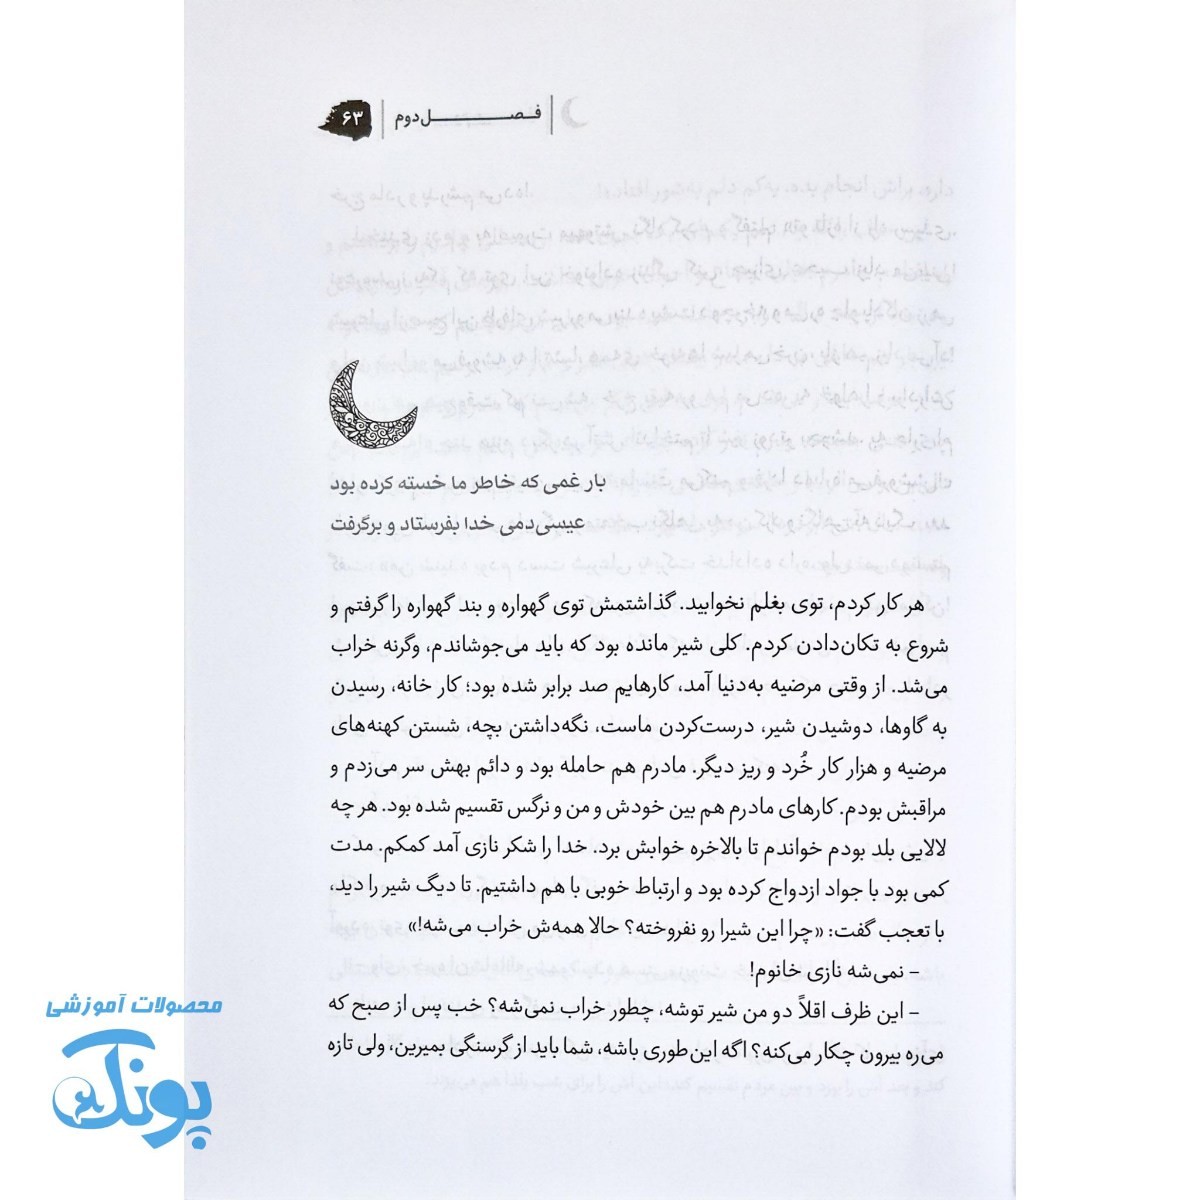 فصل دوم
۶۳
بار غمی که خاطر ما خسته کرده بود
عیسی‌دمی خدا بفرستاد و برگرفت
هر کار کردم، توی بغلم نخوابید. گذاشتمش توی گهواره و بند گهواره را گرفتم و
شروع به تکان‌دادن کردم. کلی شیر مانده بود که باید می‌جوشاندم، وگرنه خراب
می‌شد. از وقتی مرضیه به‌دنیا آمد، کارهایم صد برابر شده بود؛ کار خانه، رسیدن
به گاوها، دوشیدن شیر، درست‌کردن ماست، نگه‌داشتن بچه، شستن کهنه‌های
مرضیه و هزار کار خُرد و ریز دیگر. مادرم هم حامله بود و دائم بهش سر می‌زدم و
مراقبش بودم. کارهای مادرم هم بین خودش و من و نرگس تقسیم شده بود. هر چه
لالایی بلد بودم خواندم تا بالاخره خوابش برد. خدا را شکر نازی آمد کمکم. مدت
کمی بود با جواد ازدواج کرده بود و ارتباط خوبی با هم داشتیم. تا دیگ شیر را دید،
با تعجب گفت: «چرا این شیرا رو نفروخته؟ حالا همه‌ش خراب می‌شه!»
- نمی‌شه نازی خانوم!
- این ظرف اقلاً دو من شیر توشه، چطور خراب نمی‌شه؟ خب پس از صبح که
می‌ره بیرون چکار می‌کنه؟ اگه این‌طوری باشه، شما باید از گرسنگی بمیرین، ولی تازه
محصولات آموزشی
پونک